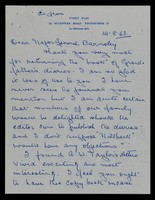 14.8.63
Dear Major General Barnsley
Thank you very much
for returning the "book" of Grand-
father's diaries. I am so glad
it was of use to you. I have
never seen the Journal you
mention but I am quite certain
that members of our family
would be delighted should the
editor care to publish the diaries
and I don't suppose Millbank
would have any objections.
I found
most
interesting. I feel you ought
to have this copy book